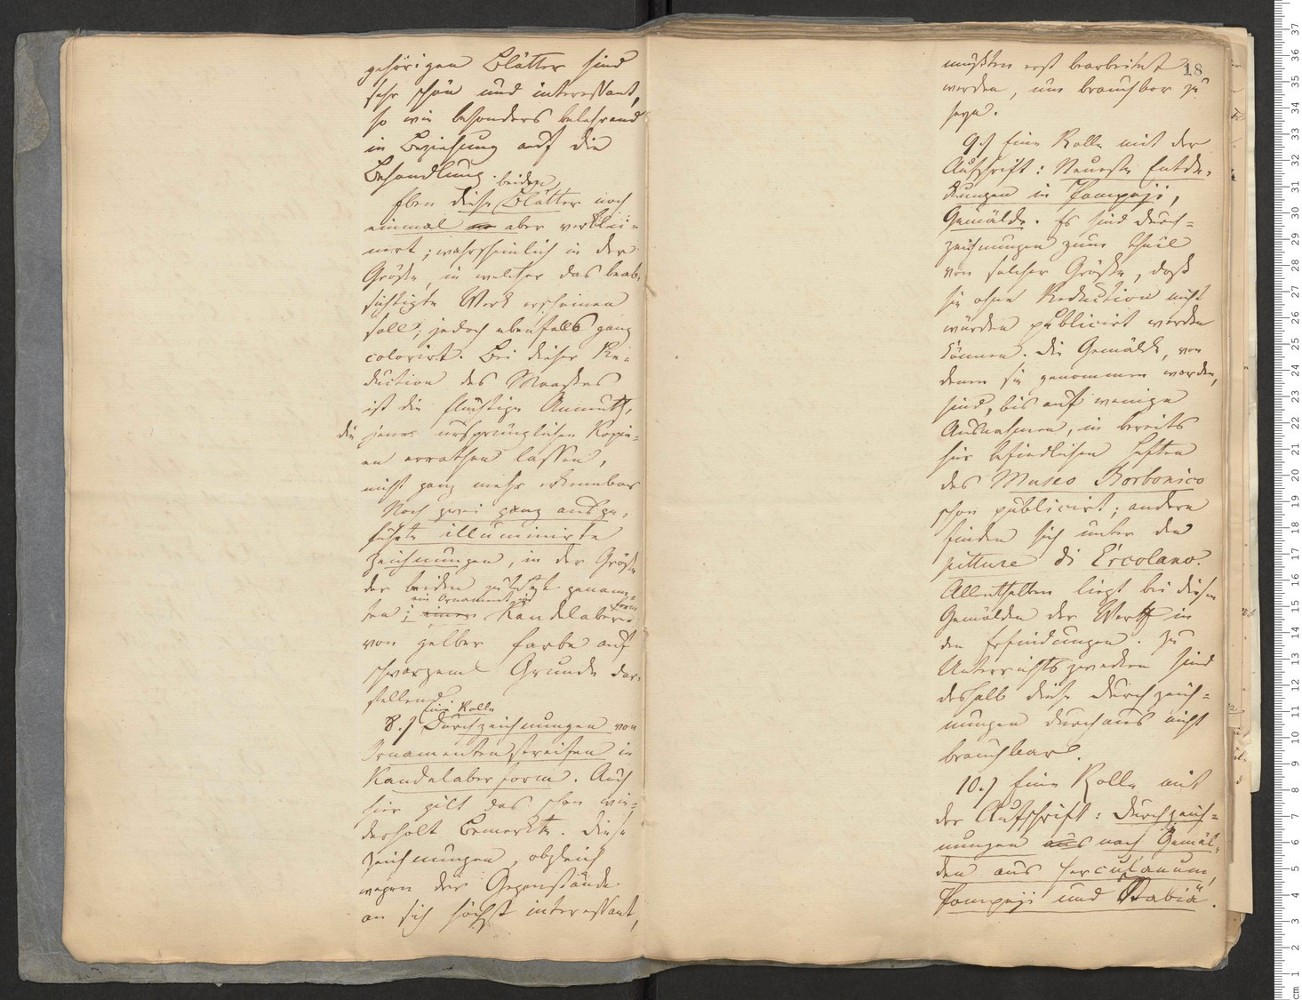 gehörigen Blätter sind
sehr schön und interessant,
so wie besonders belehrend
in Beziehung auf die
Behandlung.
beiden
Eben diese Blätter noch
einmal aber verklei-
nert; wahrscheinlich in der
Größe, in welcher das beab-
sichtigte Werk erscheinen
soll; jedoch ebenfalls ganz
colorirt. Bei dieser Re-
duction des Maaßes
ist die flüchtige Anmuth,
die jene ursprünglichen Kopie-
en errathen lassen,
nicht ganz mehr erkennbar
Noch zwei ganz ausge-
führte illuminirte
Zeichnungen, in der Größe
der beiden zuletzt genann-
ein Ornament in
ten; einen Kandelaber
form
von gelber Farbe auf
schwarzem Grunde dar-
stellend.
Eine Rolle
8.) Durchzeichnungen von
Ornamentenstreifen in
Kandelaberform. Auch
hier gilt das schon wie-
derholt Bemerkte. Diese
Zeichnungen, obgleich
wegen der Gegenstände
an sich höchst interessant,
18
müßten erst bearbeitet
werden, um brauchbar zu
seyn.
9.) Eine Rolle mit der
Aufschrift: Neueste Entde-
kungen in Pompeji,
Gemälde. Es sind Durch-
zeichnungen zum theil
von solcher Größe, daß
sie ohne Reduction nicht
würden publicirt werden
können. Die Gemälde, von
denen sie genommen worden,
sind, bis auf wenige
Ausnahmen, in bereits
hier befindlichen Heften
des Museo Borbonico
schon publicirt; andere
finden sich unter den
pitture di Ercolano.
Allenthalben liegt bei diesen
Gemälden der Werth in
den Erfindungen. Zu
Unterrichtszwecken sind
deshalb diese Durchzeich-
nungen durchaus nicht
brauchbar.
10.) Eine Rolle mit
der Aufschrift: Durchzeich-
nungen aus nach Gemäl-
den aus Herculanum,
Pompeji und Stabiä.